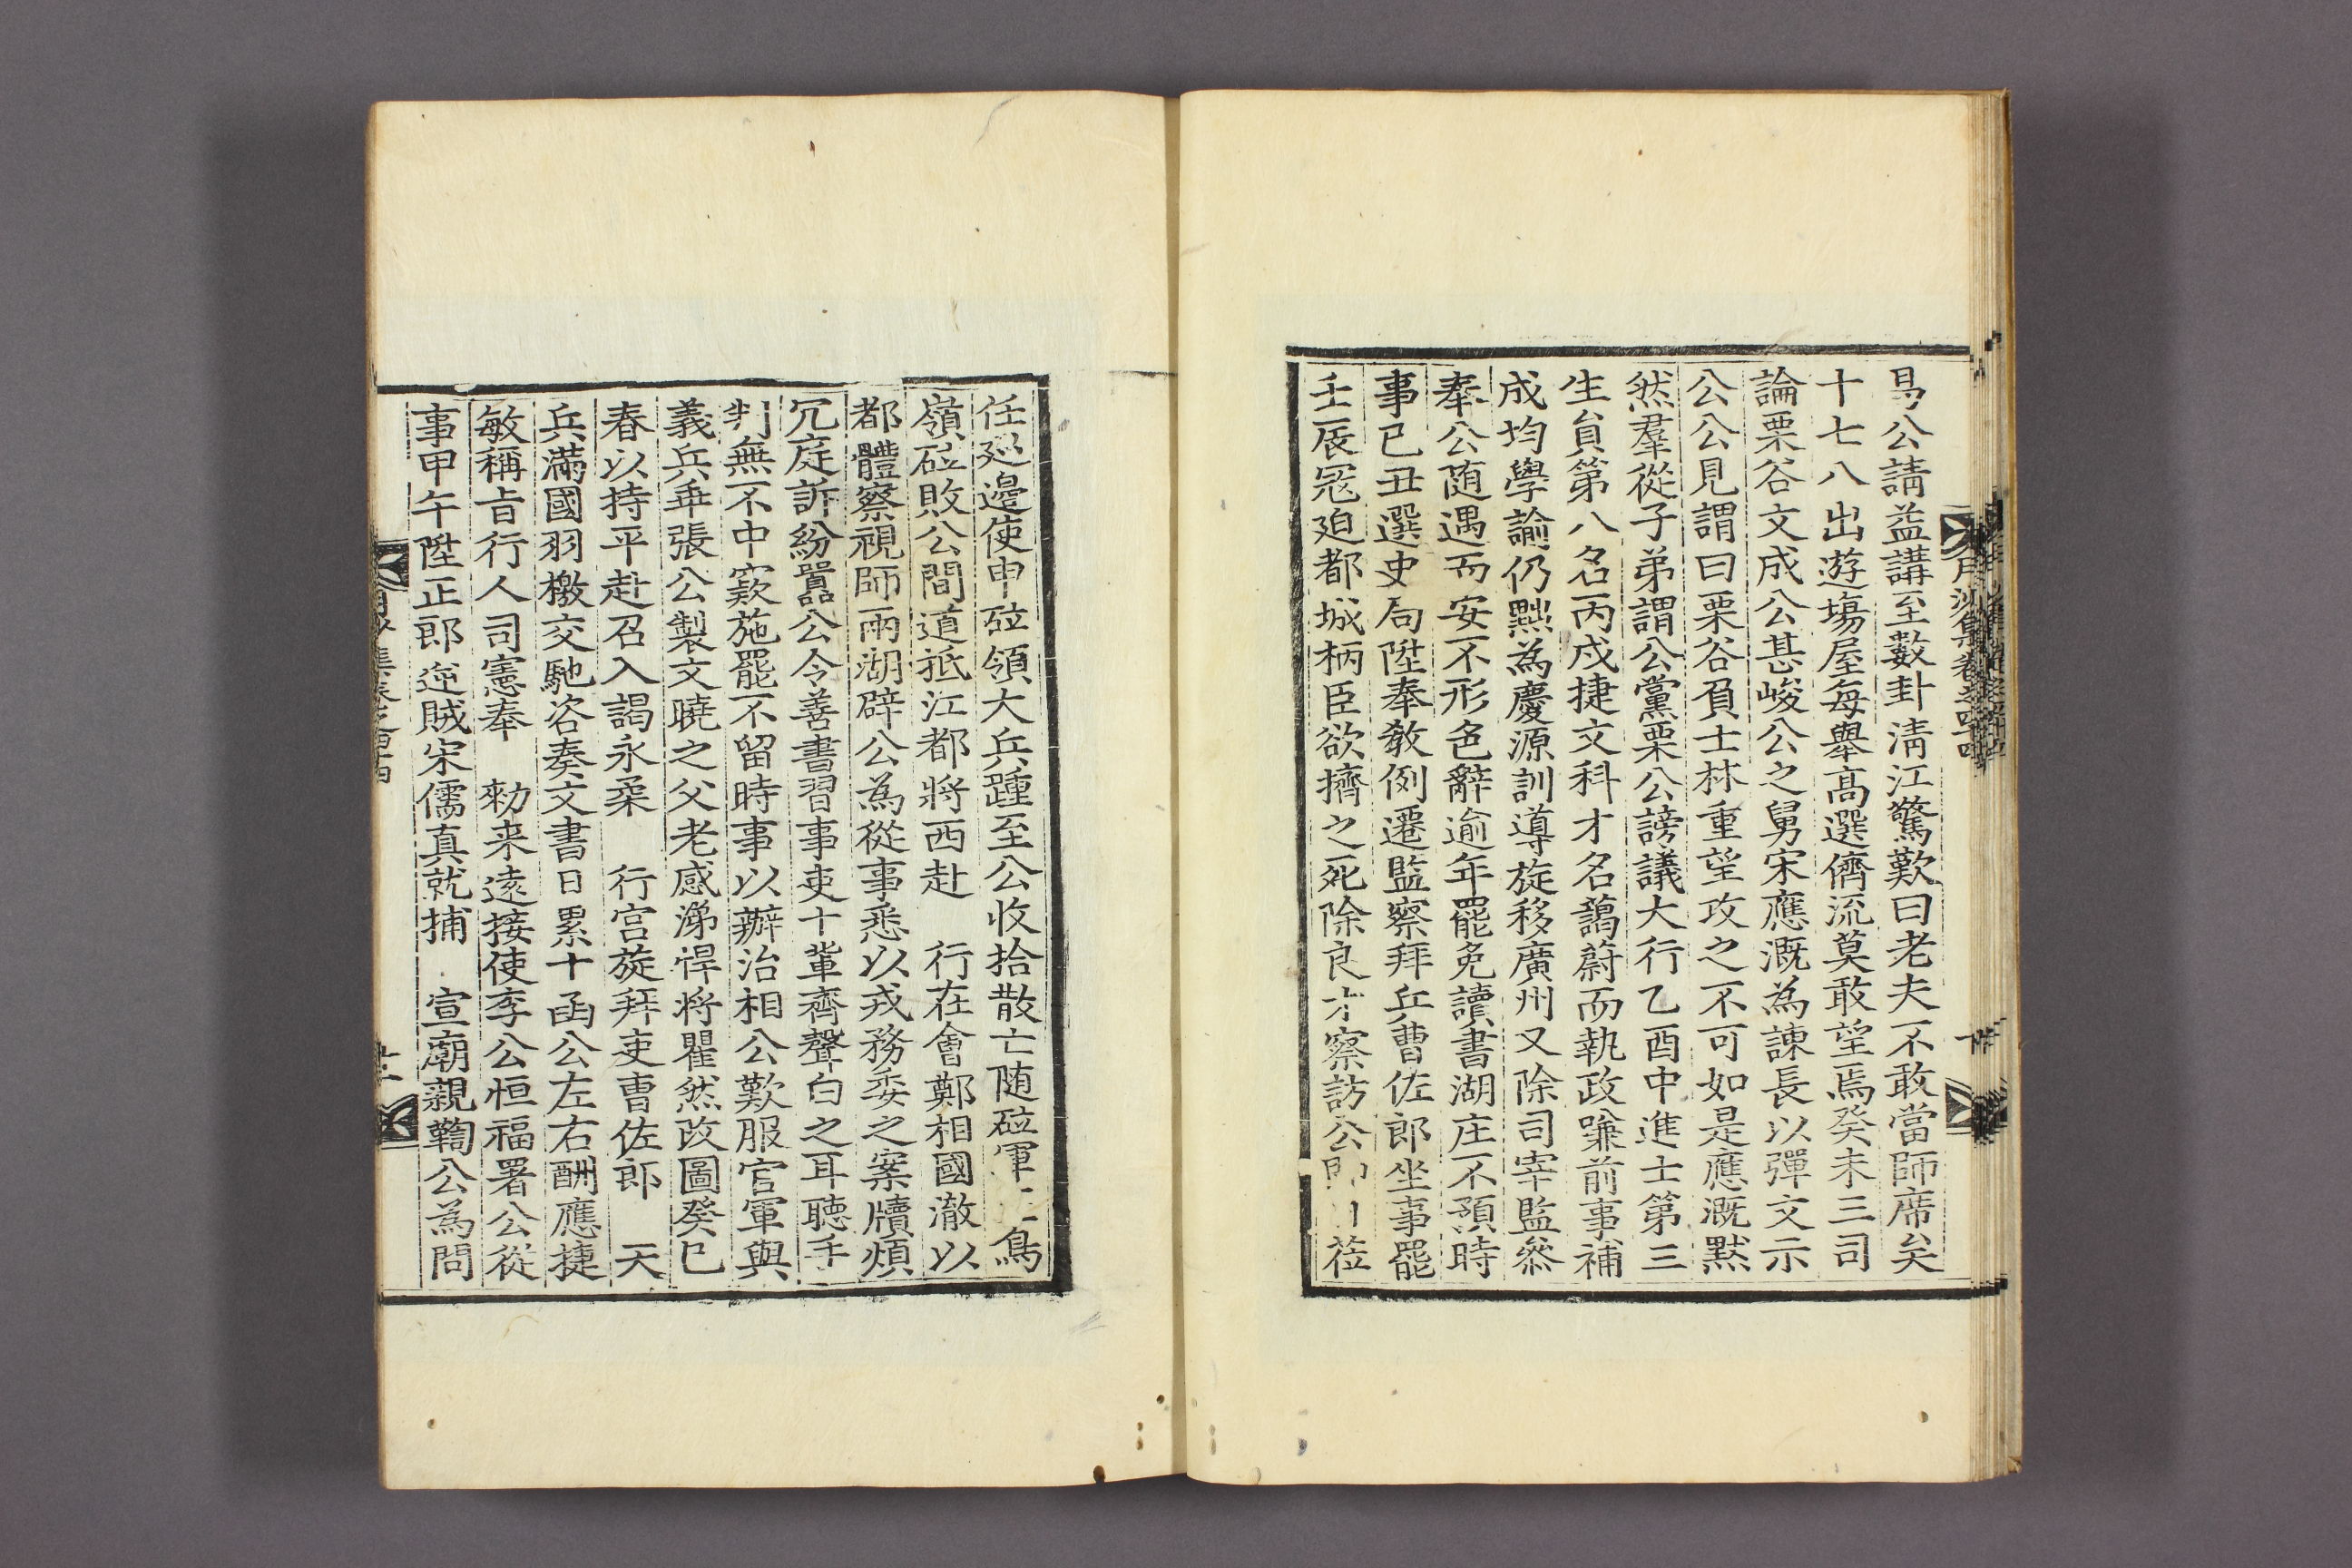 易公請益講至數卦淸江驚歎曰老夫不敢當師席矣
十七八出遊塲屋每舉高選儕流莫敢望焉癸未三司
論栗谷文成公甚峻公之舅宋應漑為諫長以彈文示
公公見謂曰栗谷負士林重望攻之不可如是應漑默
然羣從子弟謂公黨栗公謗議大行乙酉中進士第三
生負第八名丙戌捷文科才名藹蔚而執政嗛前事補
成均學諭仍黜為慶源訓導旋移廣州又除司宰監叅
奉公随遇而安不形色辭逾年罷免讀書湖庄不預時
事已丑選史局陞奉教例遷監察拜兵曹佐郎坐事罷
壬辰冦廹都城柄臣欲擠之死除良才察訪公即日莅
任廵邊使申砬領大兵踵至公收拾散亡随砬軍鳥
嶺砬敗公間道抵江都將西赴 行在會鄭相國澈以
都體察視師兩湖辟公為從事悉以戎務委之案牘煩
冗庭訴紛囂公令善書習事吏十軰齊聲白之耳聴手
判無不中窾施罷不留時事以辦治相公歎服官軍與
義兵乖張公製文曉之父老感涕悍將瞿然改圖癸巳
春以持平赴召入謁永柔 行宮旋拜吏曺佐郎 天
兵滿國羽檄交馳咨奏文書日累十函公左右酬應捷
敏稱旨行人司憲奉 勑来遠接使李公恒福署公從
事甲午陞正郎逆賊宋儒真就捕 宣廟親鞫公為問